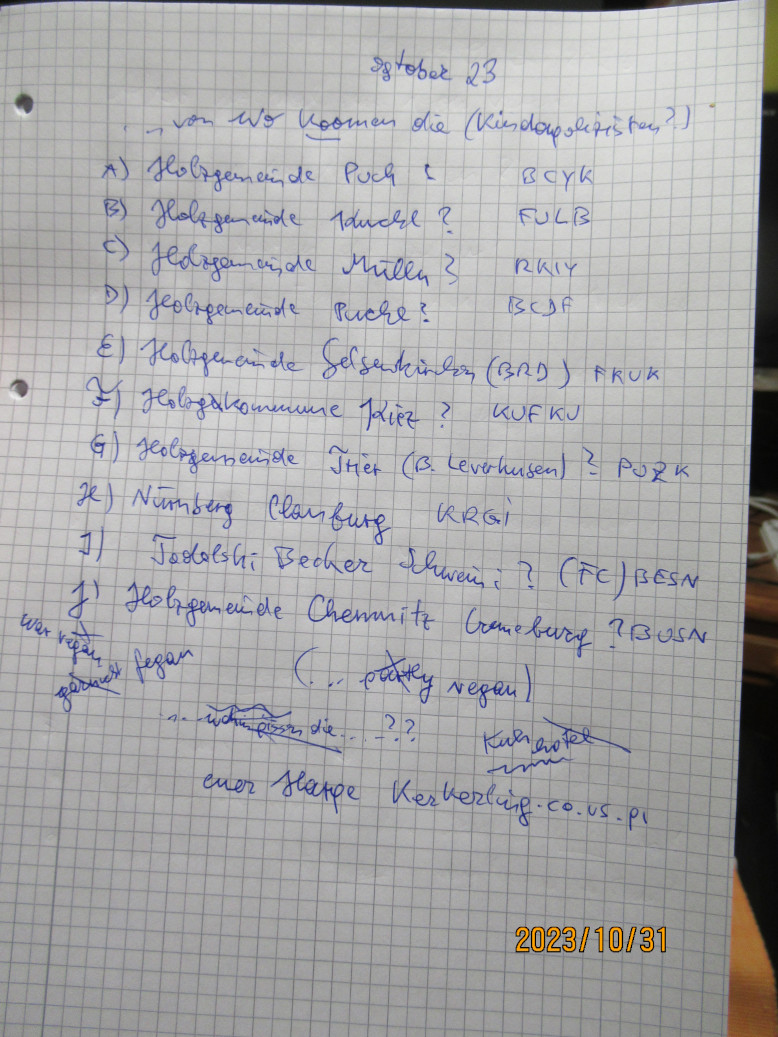 ogtober 23
... von wo koomen die (Kinderpolizisten?)
A) Holzgemeinde Puch ? BCYK
B) Holzgemeinde Kuchl ? FULB
C) Holzgemeinde Mülln ? RKIY
D) Holzgemeinde Puchl ? BCDF
E) Holzgemeinde Gelsenkirchen (BRD) FKUK
F) Kiez ? KUFKU
G) Holzgemeinde Trier (B. Leverkusen) ? PUZK
H) Nürnberg KRGi
I) Todolski Becker Schweini ? (FC) BESN
J) Holzgemeinde Chemnitz ? BUSN
fegan (... vegan)
... die ... ??
euer Harpe Kerkerling.co.us.pi
2023/10/31